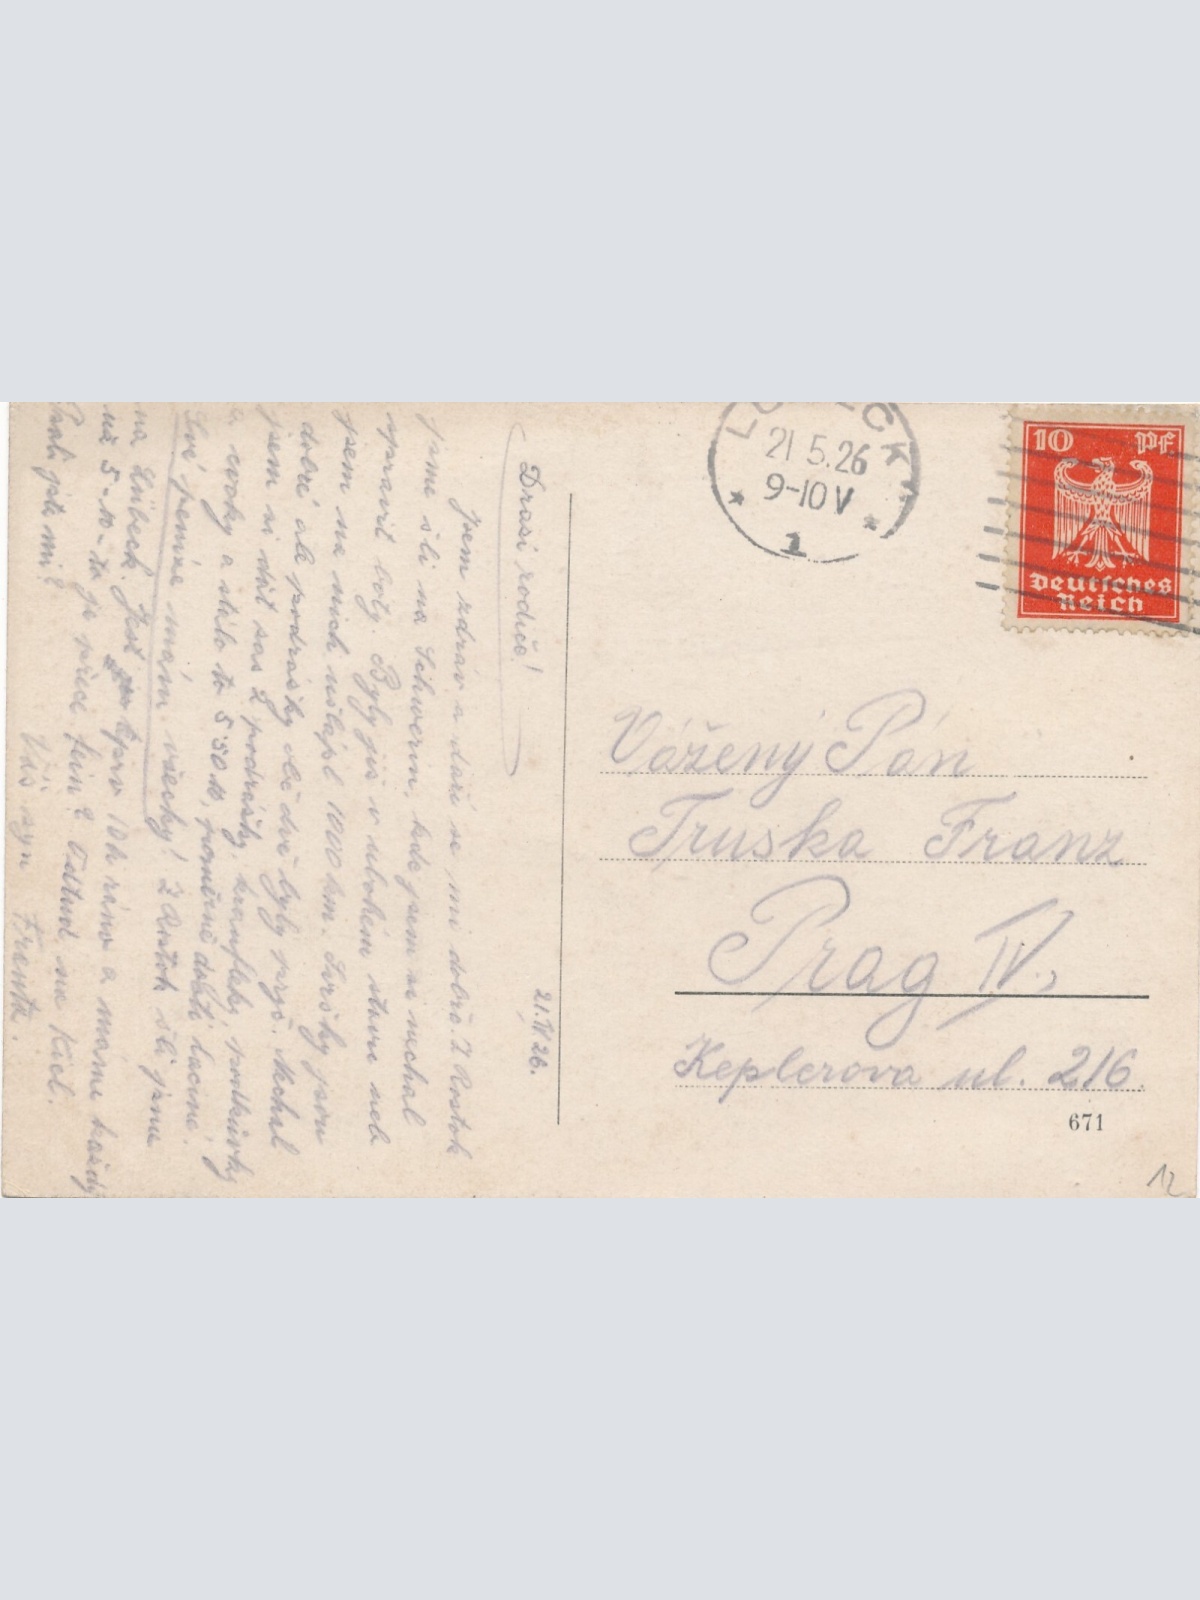 21.V.26.
Drazí rodiče!
Jsem zdráv a daří se mi dobře. Z Rostok
jsme šli na Schwerin, kde jsem si nechal
spravit boty. Byly již v ubohém stavu neb
jsem na nich ušlápl 1000 km. Svršky jsou
dobré ale podrážky obě dvě byly pryč. Nechal
jsem si dát sas 2 podrážky, kramfleky, podkůvky
a cvoky a stálo to 5˙50 M, poměrně dosti laciné.
Své peníze mám všecky! Z Rostok šli jsme
na Lübeck. Jest teprv 10 h ráno a máme každý
už 5 - M - to je přeci fein? Odtud na Kiel.
Psali jste mi?
Váš syn Frantík.
LÜBECK
21 5.26
9-10 V
1
10 Pf
Deutsches
Reich
Vážený Pán
Truska Franz
Prag IV.,
Keplerova ul. 216.
671
12